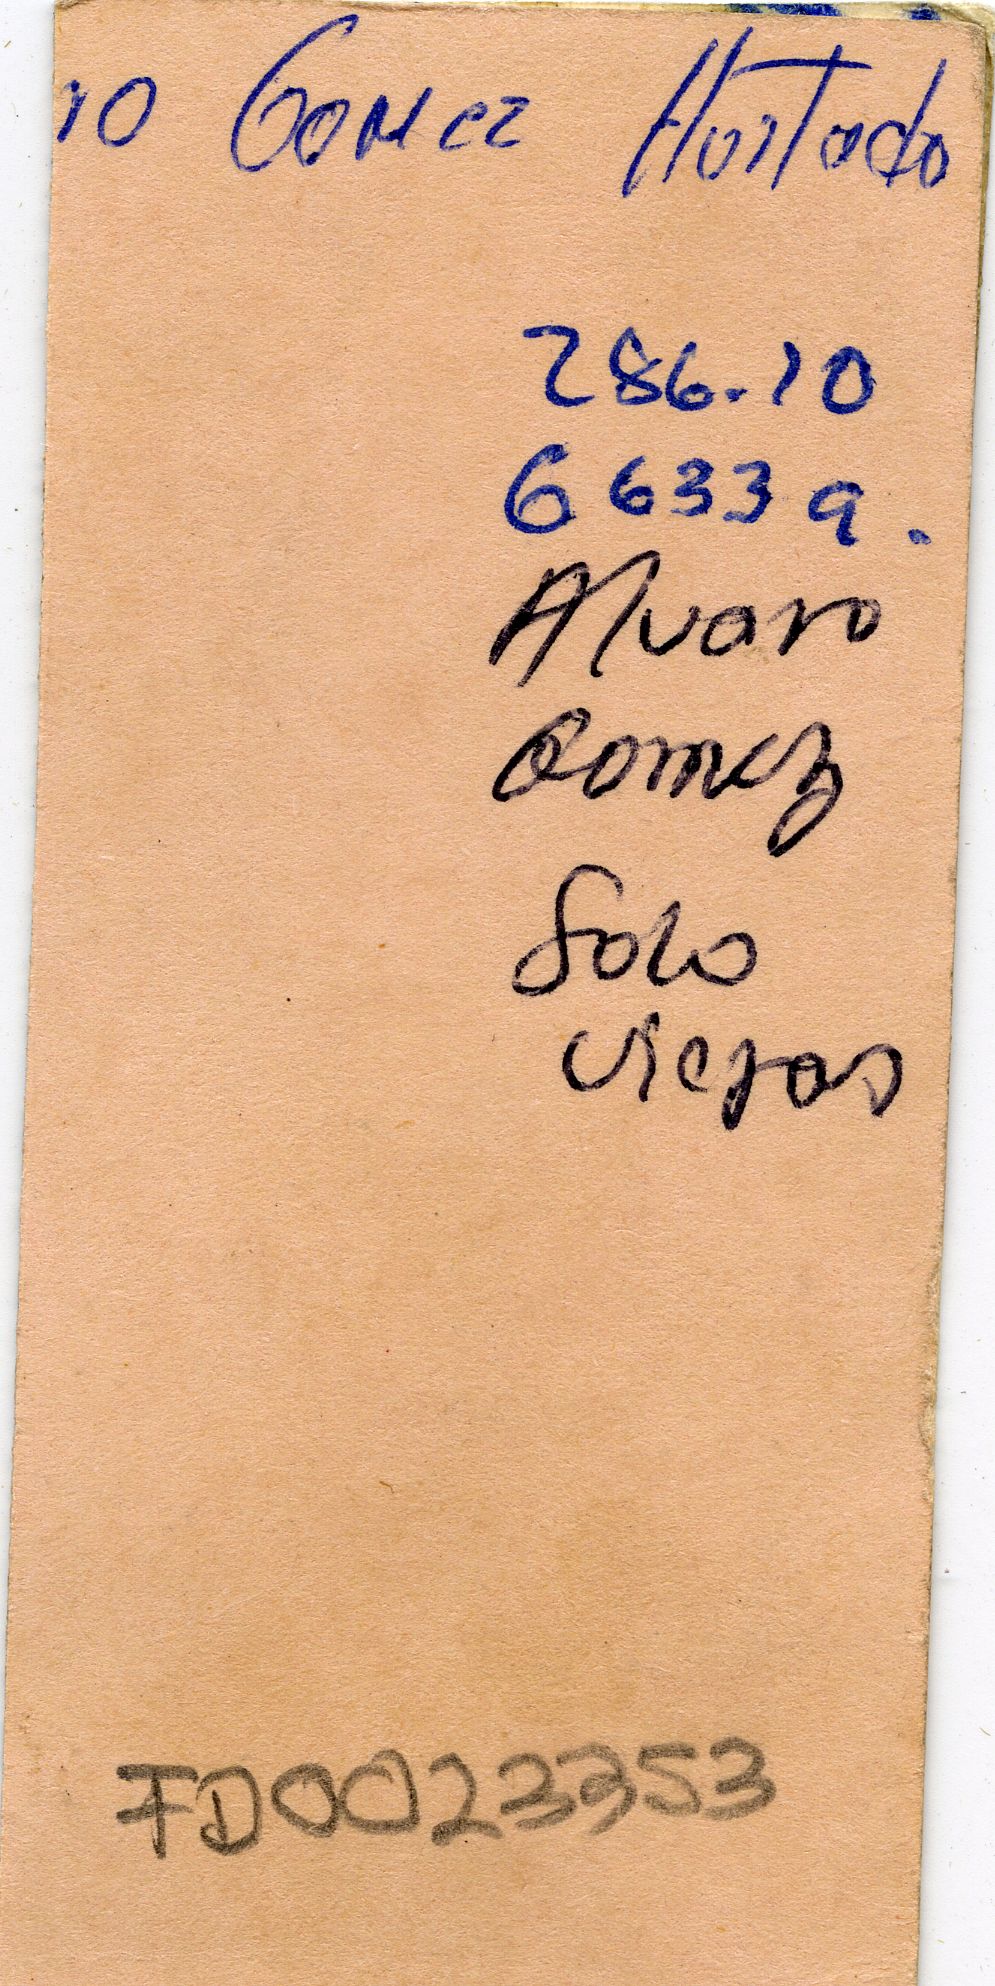 ro Gomez Hurtado
286.10
G 633 a.
Alvaro
Gomez
Solo
viejas
FD0023353